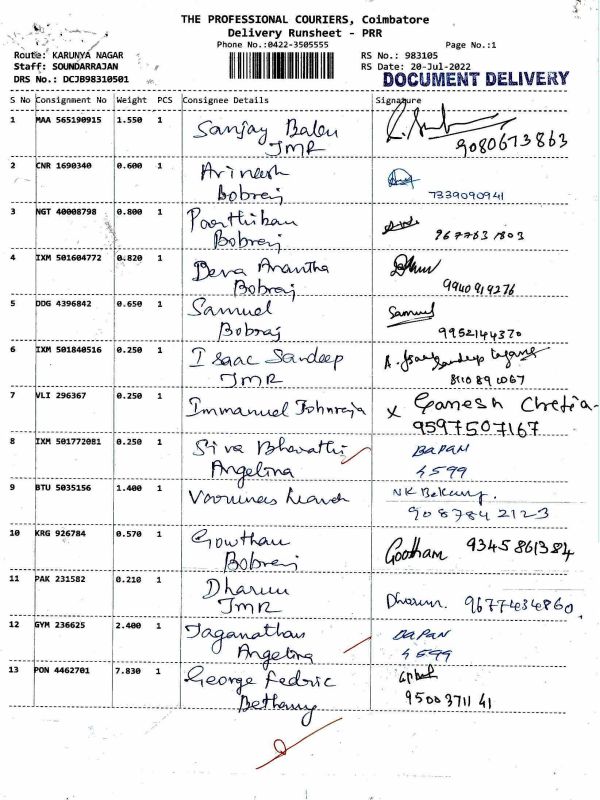 THE PROFESSIONAL COURIERS, Coimbatore
Delivery Runsheet - PRR
Phone No.:0422-3505555 Page No.:1
Route: KARUNYA NAGAR RS No.: 983105
Staff: SOUNDARRAJAN RS Date: 20-Jul-2022
DRS No.: DCJB98310501 DOCUMENT DELIVERY
S No Consignment No Weight PCS Consignee Details Signature
1 MAA 565190915 1.550 1 Sanjay Balu
JMR 9080673863
2 CNR 1690340 0.600 1 Avinash
Bobraj 7339090941
3 NGT 40008798 0.800 1 Parthiban
Bobraj 9677631803
4 IXM 501604772 0.820 1 Deva Anantha
Bobraj 9940919276
5 DDG 4396842 0.650 1 Samuel Samuel
Bobraj 9952144370
6 IXM 501840516 0.250 1 Isaac Sandeep
JMR 8110891067
7 VLI 296367 0.250 1 Immanuel Johnraja x Ganesh
9597507167
8 IXM 501772081 0.250 1 Siva Bharathi BAPAN
Angelina 4599
9 BTU 5035156 1.400 1 NK Bakery.
9087842123
10 KRG 926784 0.570 1 Gowtham Gootham 9345861384
Bobraj
11 PAK 231582 0.210 1 Dharun Dharun. 9677434860.
JMR
12 GYM 236625 2.400 1 Jaganathan BAPAN
Angelina 4599
13 PON 4462701 7.830 1 George Fedric
Bethany 9500371141